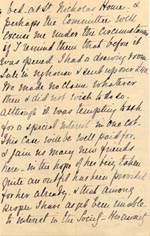 bed at St Nicholas Home - &
perhaps the Committee will
excuse me under the circumstances
if I remind them that before it
was opened I had a drawing room
sale in & sent up over
We made no claim whatever
then & did not wish to do so,
altho' it was tempting to ask
for a special interest in one cot.
The case will be well paid for.
& I gain so many new friends
here - in the hope of her being taken
Quite an outfit has been provided
for her already & that among
people I have as yet been unable
to interest in the Society -